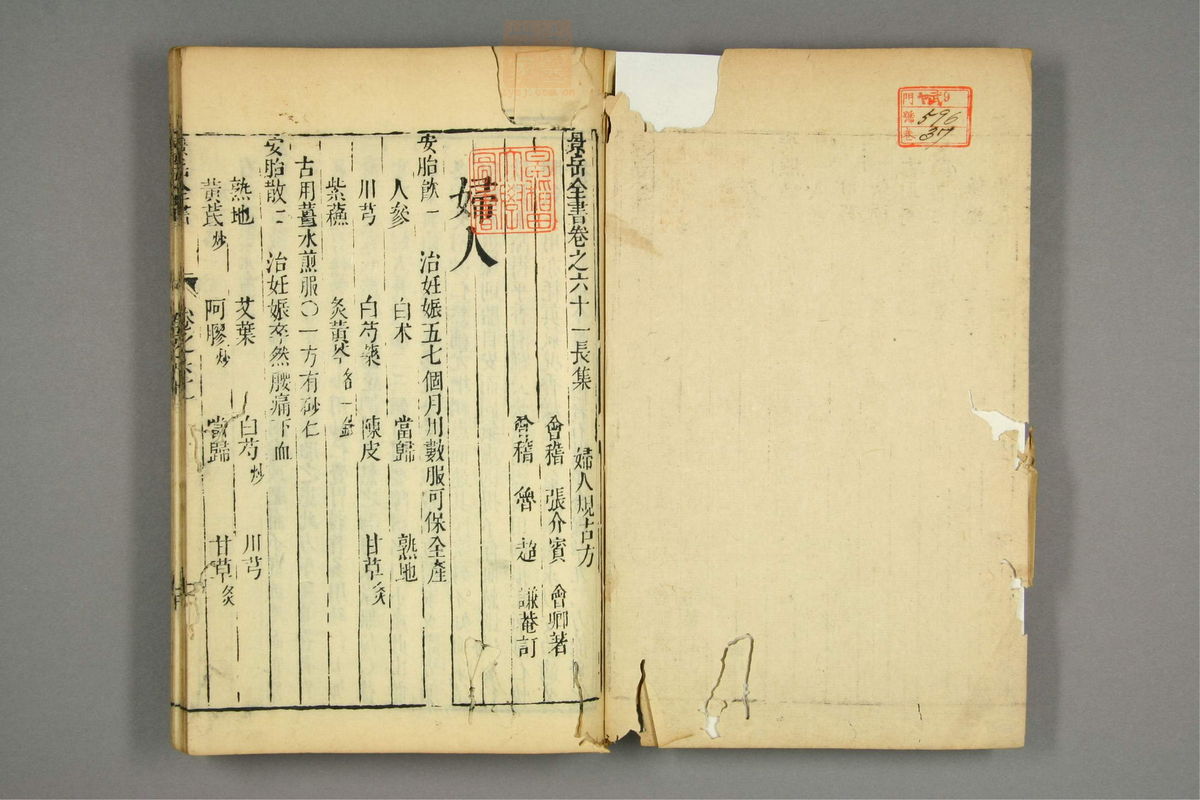 景岳全書卷之六十一長集 婦人規古方
會稽 張介賓 會卿著
會稽 魯 超 謙菴訂
婦人
安胎飲一 治妊娠五七個月用數服可保全產
人參 白术 當歸 熟地
川芎 白芍藥 陳皮 甘草炙
紫蘇 炙黃芩各一錢
古用薑水煎服〇一方有砂仁
安胎散二 治妊娠卒然腰痛下血
熟地 艾葉 白芍炒 川芎
黃芪炒 阿膠炒 當歸 甘草炙
景岳全書
門 號 卷
596
37